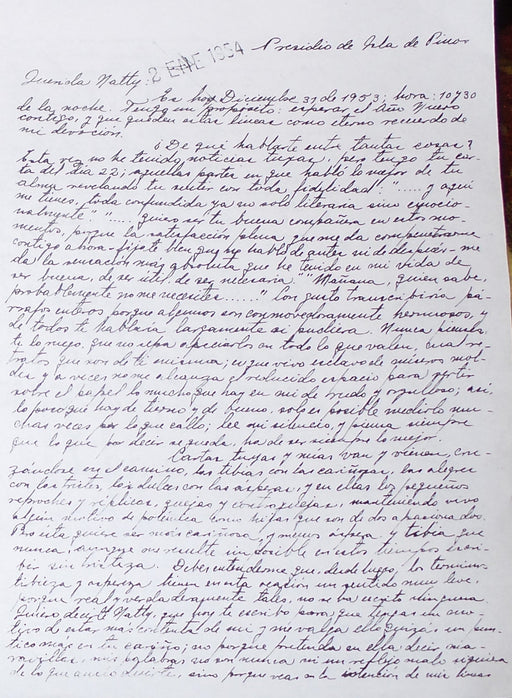 Presidio de Isla de Pinos
2 ENE 1954
Querida Natty:
Es hoy Diciembre 31 de 1953; hora: 10 y 30
de la noche. Tengo un propósito: esperar el Año Nuevo
contigo, y que queden estas líneas como eterno recuerdo de
mi devoción.
¿De qué hablarte entre tantas cosas?
Esta vez no he tenido noticias tuyas, pero tengo tu car-
ta del día 22; aquellas partes en que habló lo mejor de tu
alma revelando tu sentir con toda fidelidad: "..... y aquí
me tienes, toda confundida ya no solo literaria sino emocio-
nalmente" "..... quiero ser tu buena compañera en estos mo-
mentos, porque la satisfacción plena que me da compenetrarme
contigo ahora - fíjate bien que no hablo de antes ni de después - me
da la sensación más absoluta que he tenido en mi vida de
ser buena, de ser útil, de ser necesaria" "Mañana, quien sabe,
probablemente no me necesites ......" Con gusto transcribiría pá-
rrafos enteros porque algunos son conmovedoramente hermosos, y
de todos te hablaría largamente si pudiera. Nunca pienses,
te lo ruego, que no sepa apreciarlos en todo lo que valen, cual re-
tratos que son de ti misma; es que vivo esclavo de
y a veces no me alcanza el reducido espacio para verter
sobre el papel lo mucho que hay en mí de rudo y orgulloso; así,
lo poco que hay de tierno y de bueno, solo es posible medirlo mu-
chas veces por lo que callo; lee mi silencio, y piensa siempre
que lo que por decir se queda, ha de ser siempre lo mejor.
Cartas tuyas y mías van y vienen, cru-
zándose en el camino, las tibias con las cariñosas, las alegres
con las tristes, las dulces con las ásperas, y en ellas los pequeños
reproches y réplicas, quejas y contraquejas, manteniendo vivo
algún motivo de polémica como hijas que son de dos apasionados.
Pero esta quiere ser más cariñosa, y menos áspera y tibia que
nunca, aunque me resulte imposible en estos tiempos escri-
bir sin tristeza. Debes entenderme que, desde luego, los términos
tibieza y aspereza tienen en esta ocasión un sentido muy leve,
porque real y verdaderamente tales, no se ha escrito ninguna.
Quiero decirte Natty, que hoy te escribo para que tengas un mo-
tivo de estar más contenta de mí y me valga ello quizás un pun-
tico más en tu cariño; no porque pretenda en ella decir ma-
ravillas, mis palabras no son nunca ni un reflejo malo siquiera
de lo que quiero decirte, sino porque veas en la intención de mis líneas